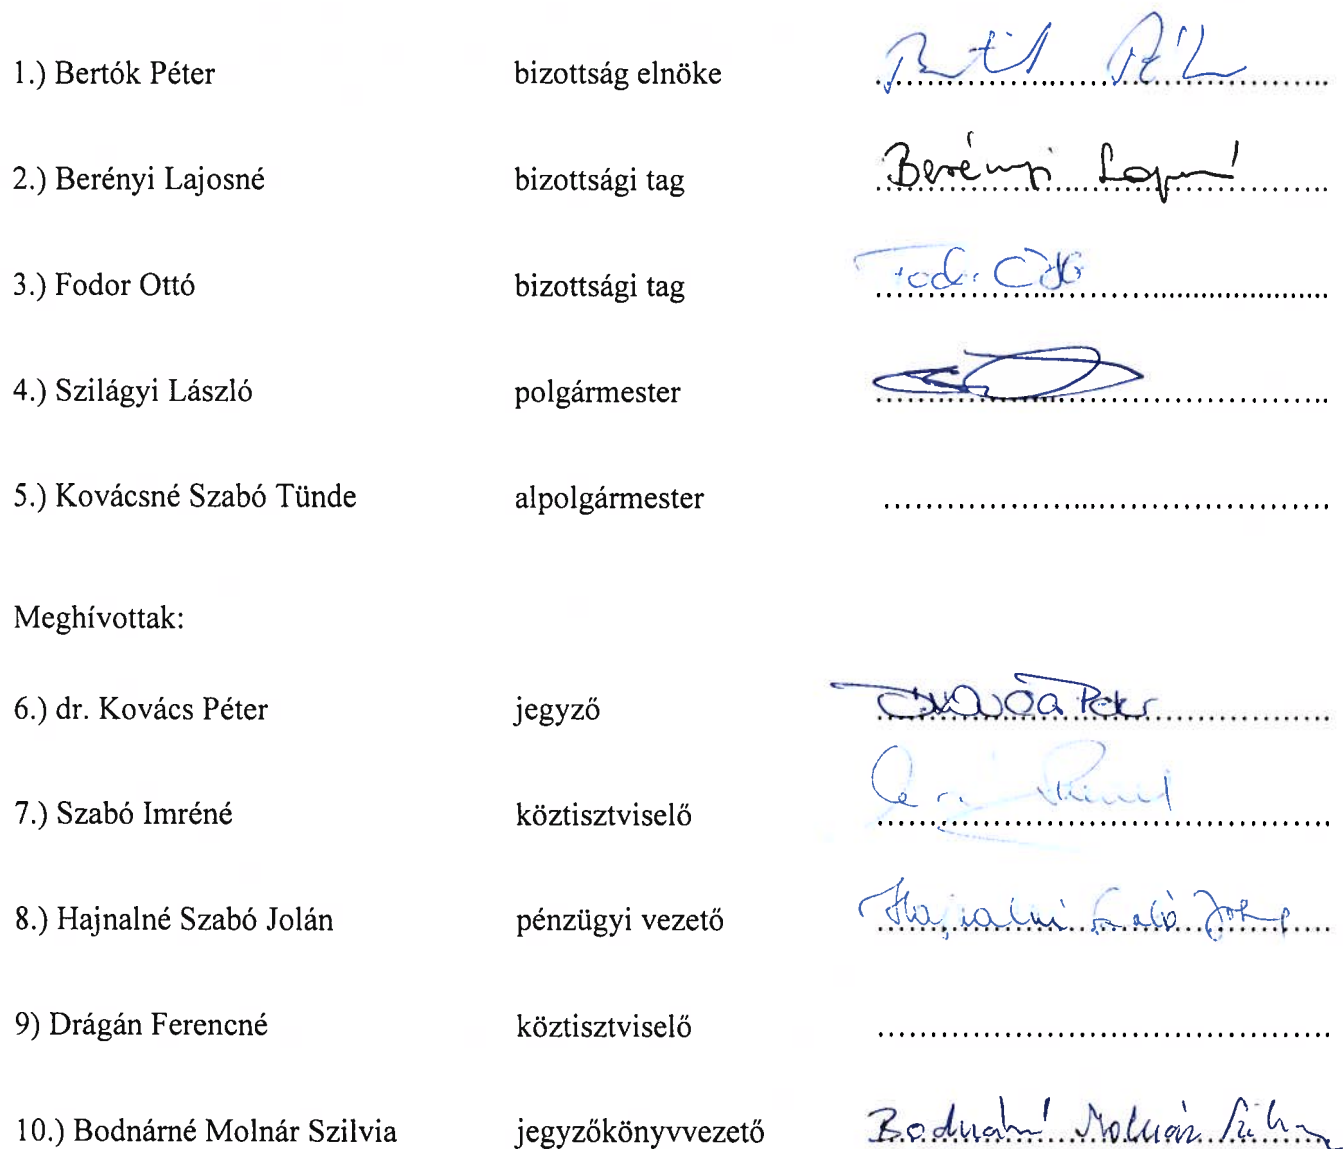 1.) Bertók Péter bizottság elnöke
2.) Berényi Lajosné bizottsági tag Berényi Lajosné
3.) Fodor Ottó bizottsági tag Fodor Ottó
4.) Szilágyi László polgármester
5.) Kovácsné Szabó Tünde alpolgármester ........................................
Meghívottak:
6.) dr. Kovács Péter jegyző
7.) Szabó Imréné köztisztviselő
8.) Hajnalné Szabó Jolán pénzügyi vezető Hajnalné Szabó Jolán
9) Drágán Ferencné köztisztviselő ........................................
10.) Bodnárné Molnár Szilvia jegyzőkönyvvezető Bodnárné Molnár Szilvia